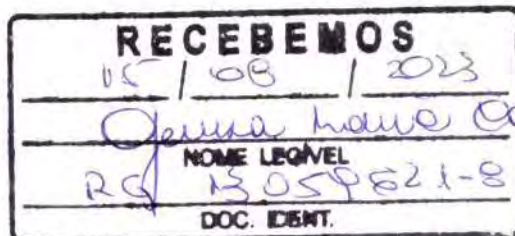 RECEBEMOS
15 / 08 / 2023
Maria
NOME LEGÍVEL
RG 13059621-8
DOC. IDENT.